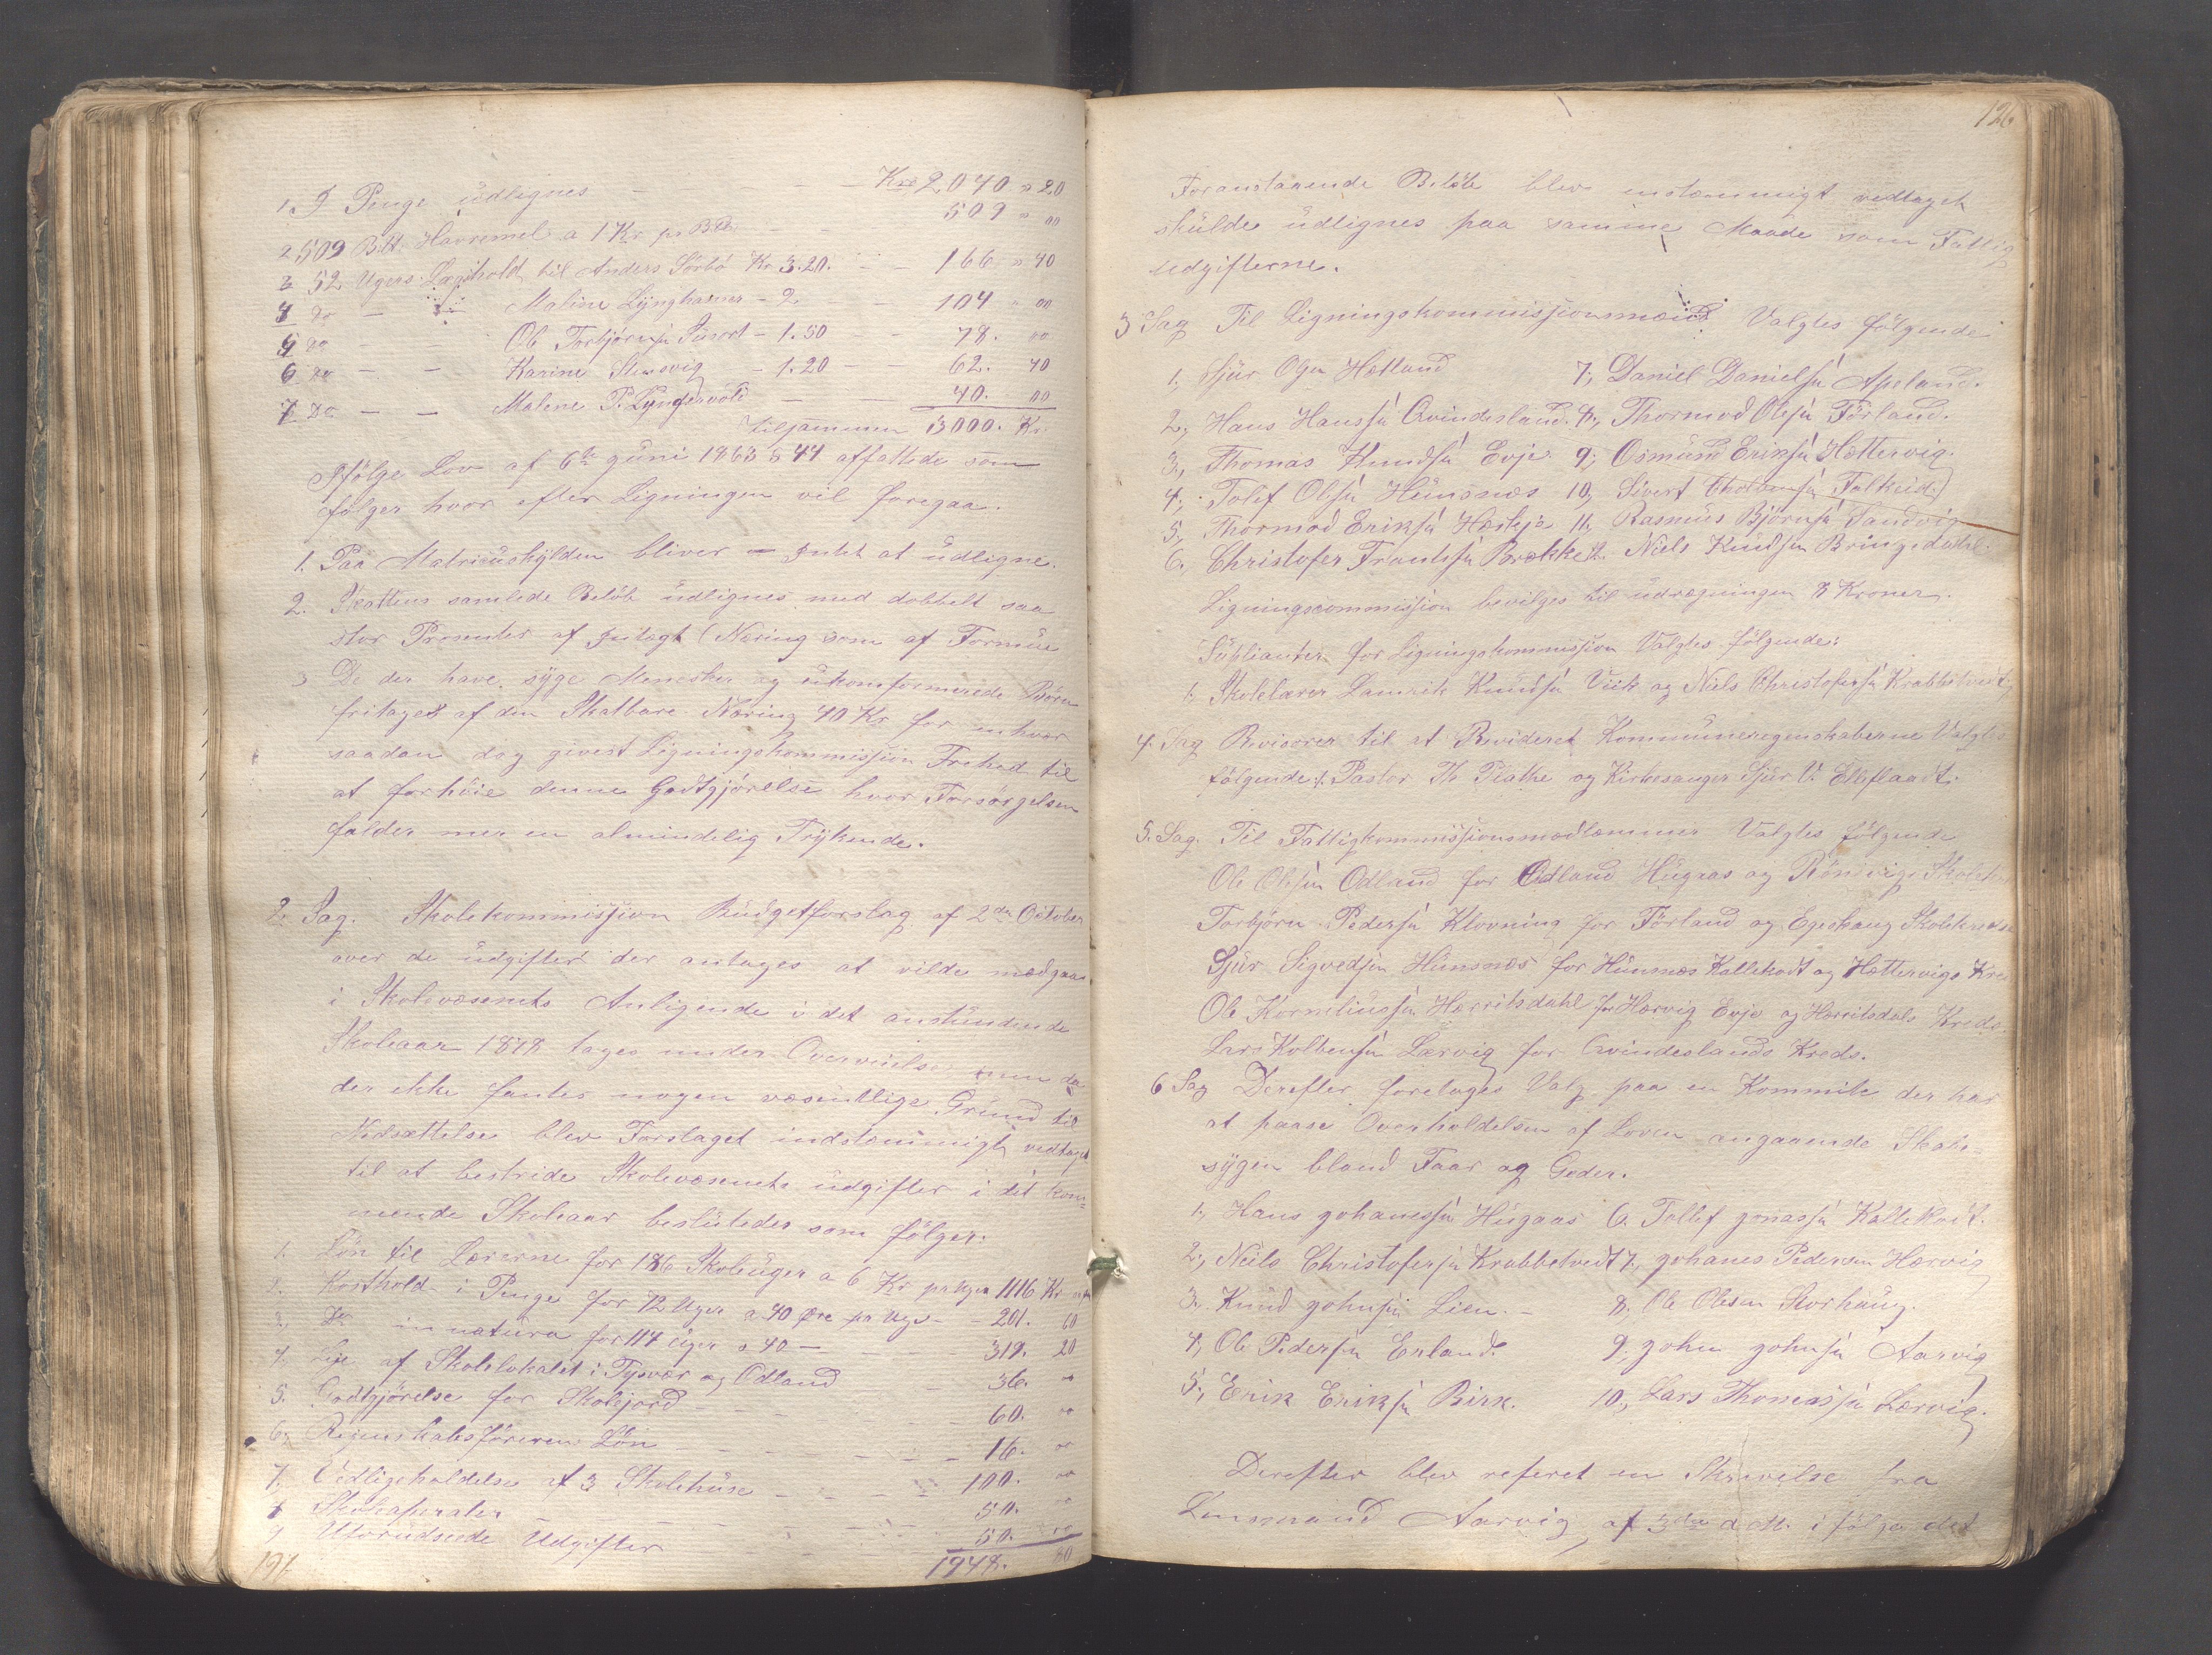 1. I Penge üdlignes — — — — Krs 2,040 " 20
2. 509 B℔ Havremel a 1 Kr pr B℔ — — 509 " 00
3. 52 Ugers Lægdhold til Anders Sörbö Kr 3.20. — — 166 " 40
4 do — Maline Lÿnghavner - 2 — 104 " 00
5 do — — Ole Torbjörnsen - 1.50 — 78. 00
6 do — — Karine Stensvig - 1.20 — — 62. 40
7 do — — Malene P. Lÿngsvold — — 40. 00
tilsammen 3000. Kr.
Ifölge Lov af 6te Juni 1863 § 44 affattede som
fölger hvor efter Ligningen vil foregaa.
1. Paa Matriculskÿlden bliver — Intet at üdligne.
2. Skattens samlede Belöb üdlignes med dobbelt saa
stor Prosenter af Intægt (Næring som af Formüe
3 De der have sÿge Mennesker og ükomformerede Börn
fritages af den Skatbare Næring 40 Kr for enhver
saadan dog givest Ligningskommission Frihed til
at forhöie denne Godtgjörelse hvor Forsörgelsen
falder mer en almindelig Trÿkende.
2. Sag. Skolekommission Büdgetforslag af 2den October
over de üdgifter der antages at vilde medgaa
i Skolevæsenets Anligende i det anstundende
Skoleaar 1878 tages under Overveielse men da
der ikke fantes nogen væsentlige Gründ til
Nedsættelse blev Forslaget indstemmigt vedtaget
til at bestride Skolevæsenets üdgifter i det kom-
mende Skoleaar beslutedes som fölger.
1. Lön til Lærerne for 186 Skoleüger a 6 Kr pr Uge 1116 Kr
2. Kosthold i Penge for 72 Uger a 40 Öre pr Uge — 201. 60
3. do in natura for 114 üger a 40 — — — 319. 20
4. Leje af Skolelokalet i Tysvær og Odland — 36. 00
5. Godtgjörelse for Skolejord — — — 60. 00
6. Regnskabsförerens Lön — — — 16. 00
7. Vedligeholdelse af 3 Skolehüse — — — 100. 00
8 Skoleaperater — — — 50. 00
9 Uforudseede Udgifter — — — 50. 00
191 1948. 80
126
Foranstaaende Belöb blev enstemmigt vedtaget
skülde üdlignes paa samme Maade som Fattig
udgifterne.
3 Sag Til Ligningskommissionsmænd Valgtes fölgende
1., Sjür Olsen Hetland 7., Daniel Danielsen Apeland.
2., Hans Hanssen Qvindesland. 8., Thormod Olesen Förland.
3., Thomas Knudsen Evje 9., Osmund Eriksen Hettervig.
4., Tolef Olsen Hünsnæs 10, Sivert Falkeid.
5., Thormod Eriksen Hesteje 11. Rasmus Björnsen Sandvig
6., Christofer Frantssen Brække 12. Niels Knudsen Bringedahl
Ligningscommission bevilges til üdregningen 8 Kroner.
Süplianter for Ligningskommission Valgtes fölgende:
1. Skolelærer Lauritz Knudsen Viik og Niels Christofersen Krabbetveit
4. Sag Revisorer til at Revideret Kommüneregenskaberne Valgtes
fölgende: Pastor Th Plathe og Kirkesanger Sjür V. Elleflaadt.
5. Sag. Til Fattigkommissionsmedlemmer Valgtes fölgende
Ole Olesen Odland for Odland Hügaas og Röndvigs Skolekr
Torbjörn Pedersen Klovning for Förland og Egeskaug Skolekreds
Sjür Sigvedsen Hünsnæs for Hünsnæs Kallekodt og Hettervigs Kre
Ole Korneliussen Herritsdahl for Hervig Evje og Herritsdals Kreds.
Lars Kolbensen Lervig for Qvindeslands Kreds.
6 Sag Derefter foretoges Valg paa en Kommite der har
at paase Overholdelsen af Loven angaaende Skabs-
sÿgen bland Faar og Geder.
1., Hans Johanessen Hügaas 6. Tollef Jonassen Kallekodt.
2., Neils Christofersen Krabbetveit 7., Johanes Pedersen Hervig
3., Knud Johnsen Lien. — 8., Ole Olesen Storhaug.
4., Ole Pedersen Erland. 9., John Johnsen Aarvig
5., Erik Eriksen Birk. 10., Lars Thomassen Lervig.
Derefter blev referet en Skrivelse fra
Lensmand Aarvig af 3die d. M. i fölge det